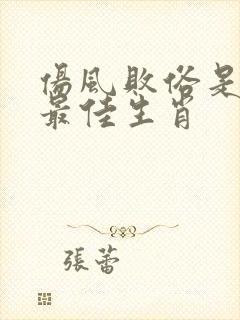 傷風敗俗是
最佳生肖
張蕾